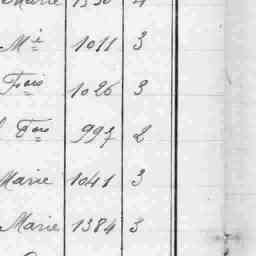 Marie 1350 4
Mie 1011 3
Fçois 1026 3
Fçois 997 2
Marie 1041 3
Marie 1384 3